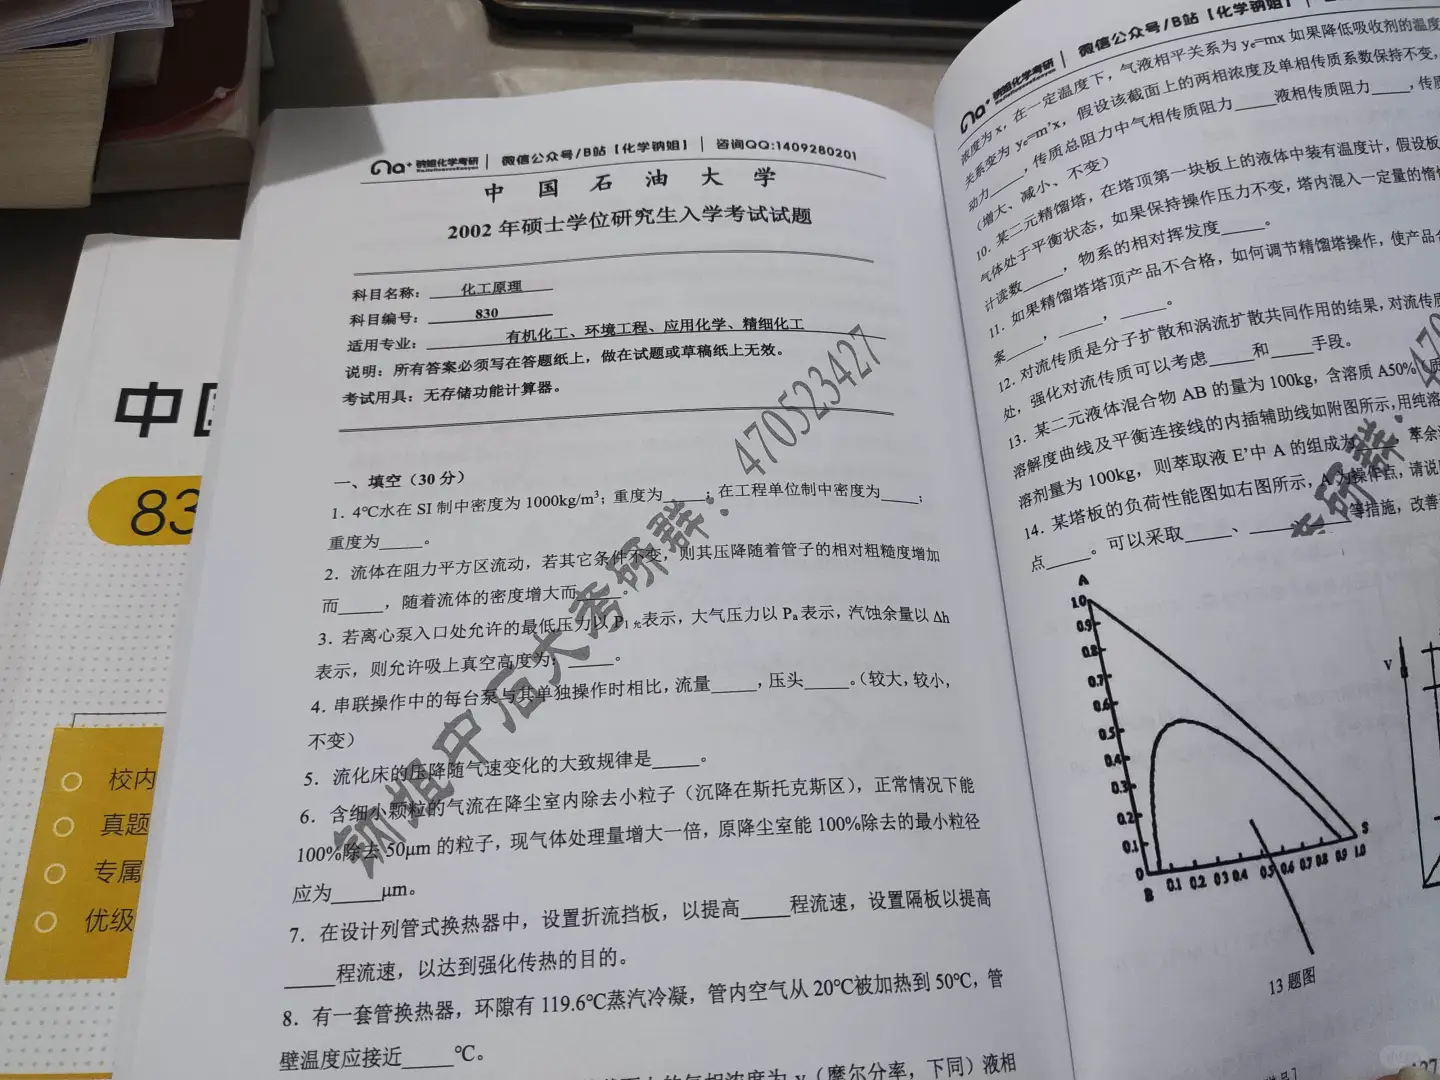 中国
83
校内
真题
专属
优级
Na+ 钠姐化学考研 | 微信公众号/B站【化学钠姐】 | 咨询QQ:1409280201
中 国 石 油 大 学
2002 年硕士学位研究生入学考试试题
科目名称: 化工原理
科目编号: 830
适用专业: 有机化工、环境工程、应用化学、精细化工
说明：所有答案必须写在答题纸上，做在试题或草稿纸上无效。
考试用具：无存储功能计算器。
一、填空（30 分）
1．4℃水在 SI 制中密度为 1000kg/m³；重度为_____；在工程单位制中密度为_____；
重度为_____。
2．流体在阻力平方区流动，若其它条件不变，则其压降随着管子的相对粗糙度增加
而_____，随着流体的密度增大而_____。
3．若离心泵入口处允许的最低压力以 P1 允表示，大气压力以 Pa 表示，汽蚀余量以 Δh
表示，则允许吸上真空高度为：_____。
4．串联操作中的每台泵与其单独操作时相比，流量_____，压头_____。（较大，较小，
不变）
5．流化床的压降随气速变化的大致规律是_____。
6．含细小颗粒的气流在降尘室内除去小粒子（沉降在斯托克斯区），正常情况下能
100%除去 50μm 的粒子，现气体处理量增大一倍，原降尘室能 100%除去的最小粒径
应为_____μm。
7．在设计列管式换热器中，设置折流挡板，以提高_____程流速，设置隔板以提高
_____程流速，以达到强化传热的目的。
8．有一套管换热器，环隙有 119.6℃蒸汽冷凝，管内空气从 20℃被加热到 50℃，管
壁温度应接近_____℃。
的气相浓度为 y（摩尔分率，下同）液相
钠姐中石大考研群：470523427
Na+ 钠姐化学考研 | 微信公众号/B站【化学钠姐】 |
浓度为 x，在一定温度下，气液相平关系为 ye=mx 如果降低吸收剂的温度
关系变为 ye=m'x，假设该截面上的两相浓度及单相传质系数保持不变，
动力_____，传质总阻力中气相传质阻力_____液相传质阻力_____，传质
（增大、减小、不变）
10．某二元精馏塔，在塔顶第一块板上的液体中装有温度计，假设板
气体处于平衡状态，如果保持操作压力不变，塔内混入一定量的惰性
计读数_____，物系的相对挥发度_____。
11．如果精馏塔塔顶产品不合格，如何调节精馏塔操作，使产品合
案_____，_____，_____。
12．对流传质是分子扩散和涡流扩散共同作用的结果，对流传质
处，强化对流传质可以考虑_____和_____手段。
13．某二元液体混合物 AB 的量为 100kg，含溶质 A50%（质
溶解度曲线及平衡连接线的内插辅助线如附图所示，用纯溶
溶剂量为 100kg，则萃取液 E'中 A 的组成为_____，萃余
14．某塔板的负荷性能图如右图所示，A 为操作点，请说
点_____。可以采取_____、_____等措施，改善
考研群：
A
1.0
0.9
0.8
0.7
0.6
0.5
0.4
0.3
0.2
0.1
0
B
0.1 0.2 0.3 0.4 0.5 0.6 0.7 0.8 0.9 1.0
S
13 题图
V